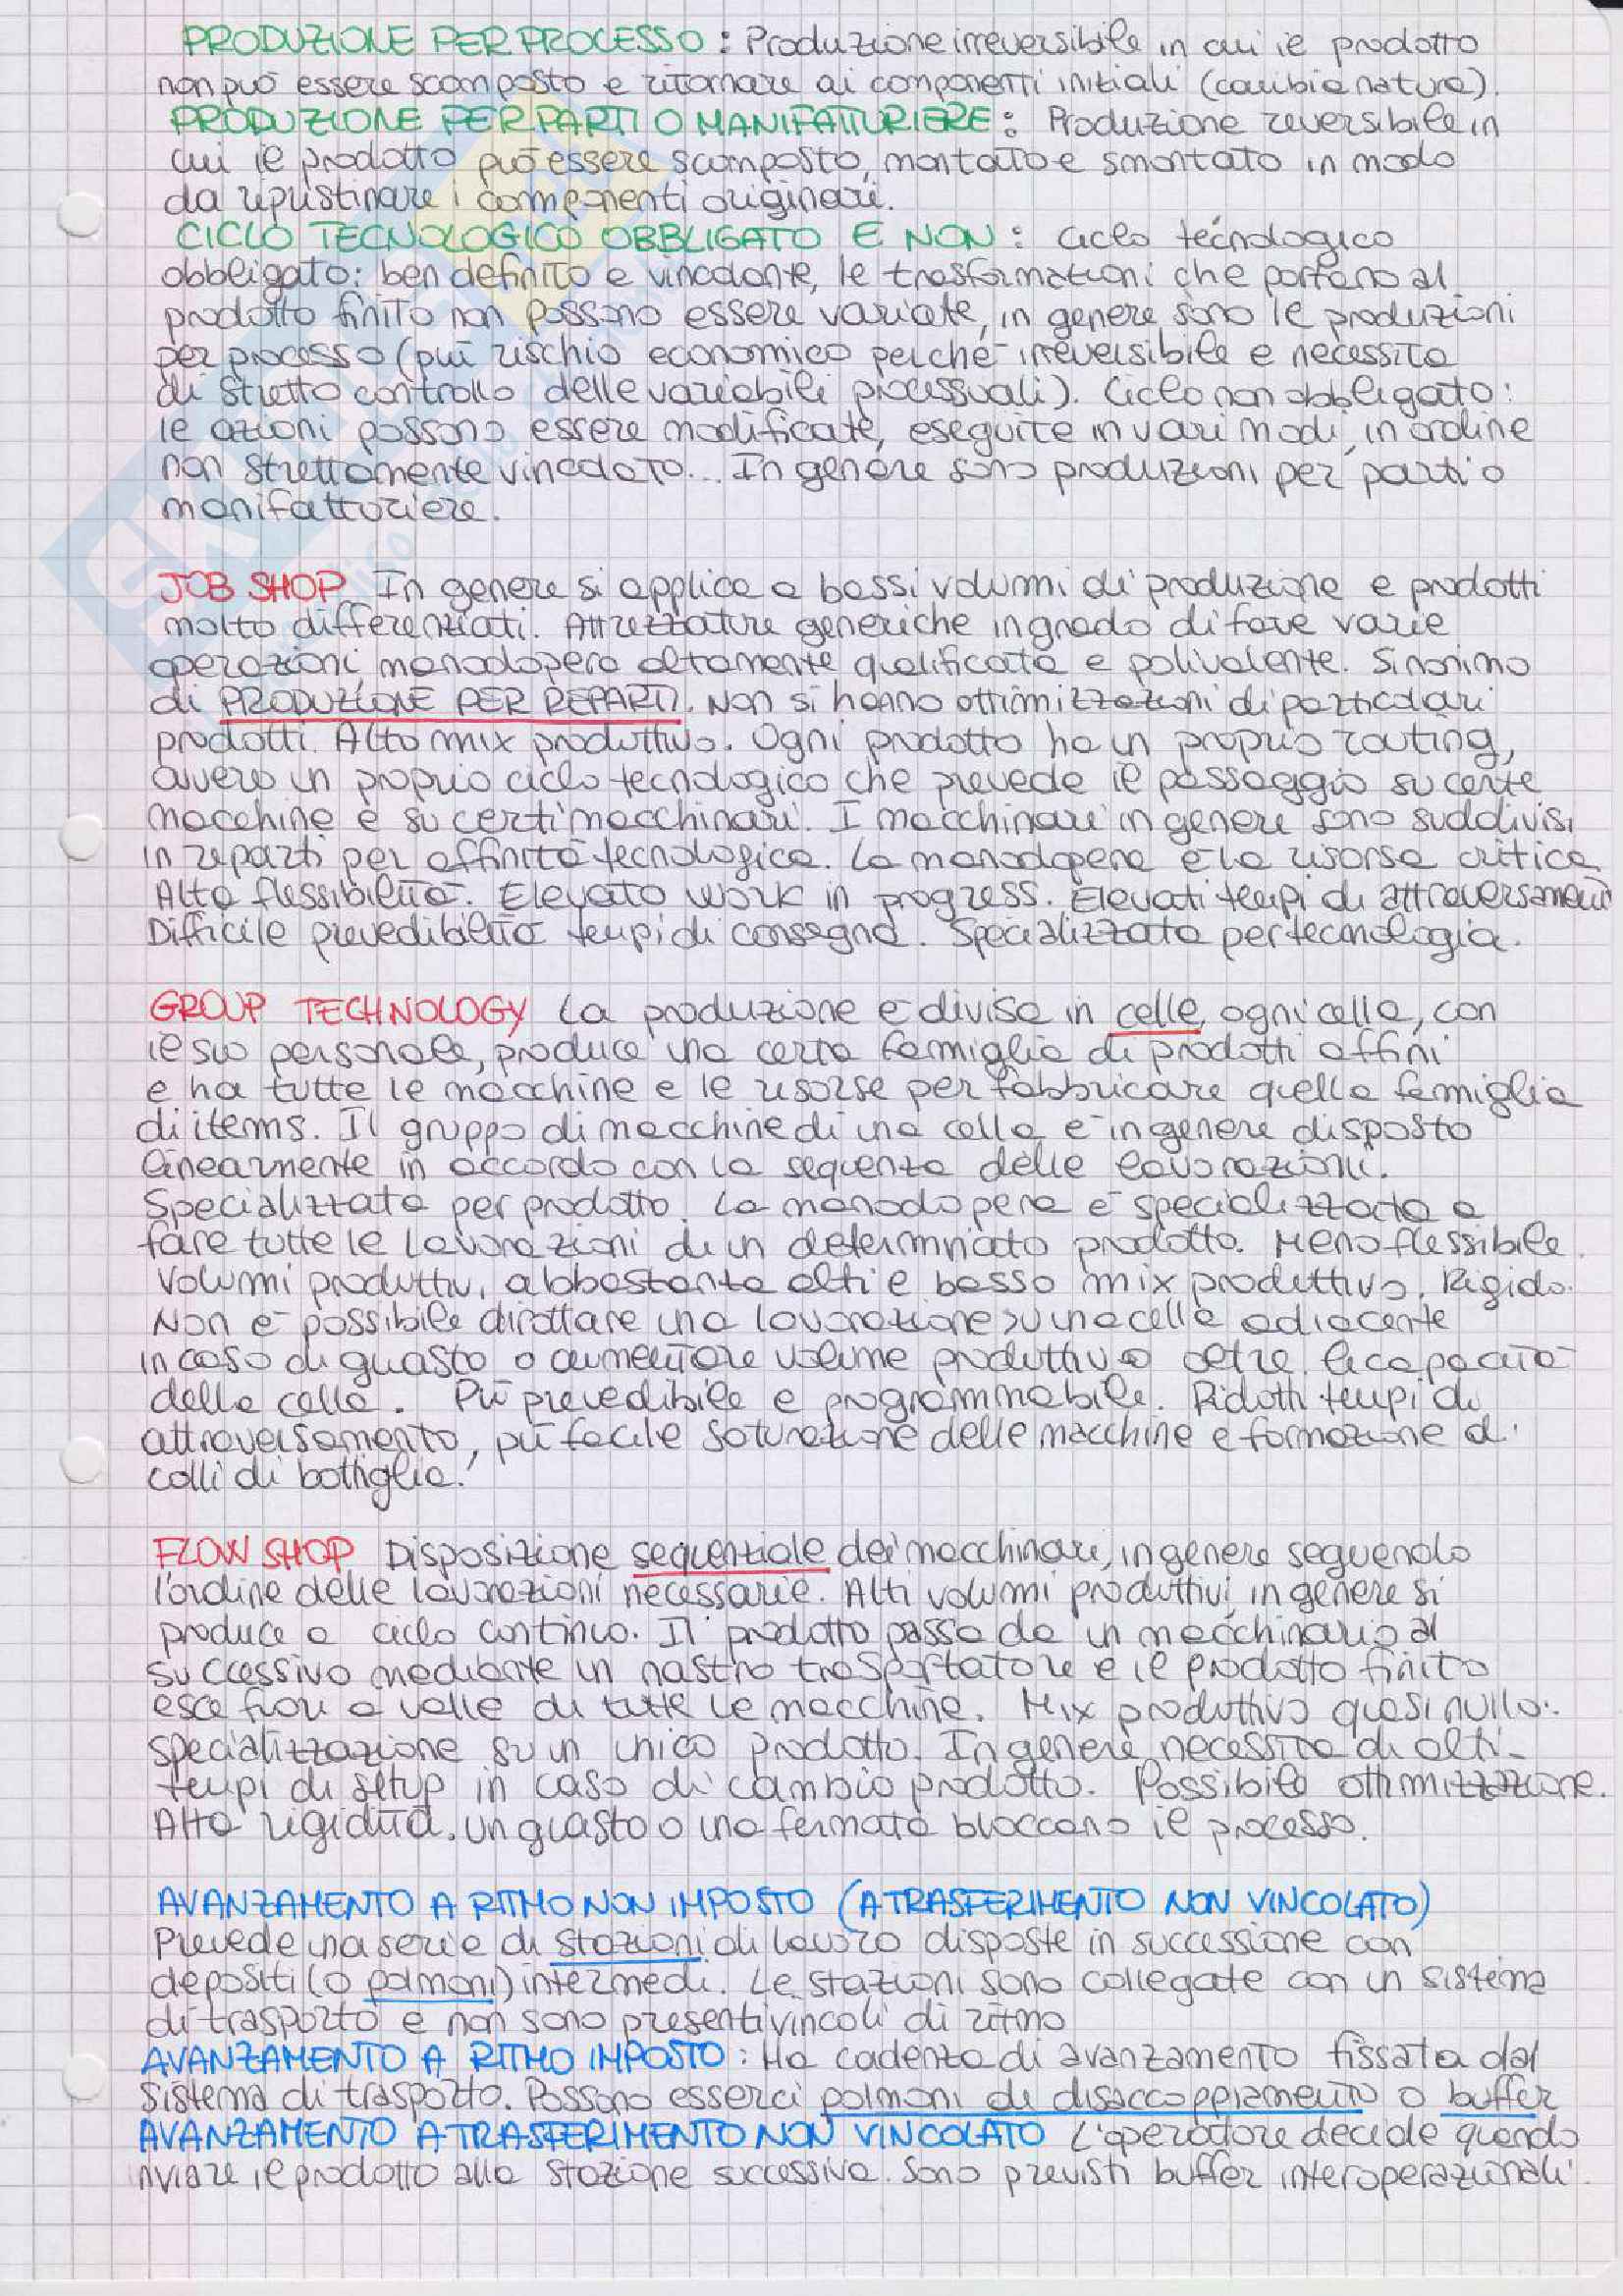 PRODUZIONE PER PROCESSO: Produzione irreversibile in cui il prodotto
non può essere scomposto e ritornare ai componenti iniziali (cambia natura).
PRODUZIONE PER PARTI O MANIFATTURIERE: Produzione reversibile in
cui il prodotto può essere scomposto, montato e smontato in modo
da ripristinare i componenti originari.
CICLO TECNOLOGICO OBBLIGATO E NON: ciclo tecnologico
obbligato: ben definito e vincolante, le trasformazioni che portano al
prodotto finito non possono essere variate, in genere sono le produzioni
per processo (più rischio economico perché irreversibile e necessita
di stretto controllo delle variabili processuali). Ciclo non obbligato:
le azioni possono essere modificate, eseguite in vari modi, in ordine
non strettamente vincolato... In genere sono produzioni per parti o
manifatturiere.
JOB SHOP In genere si applica a bassi volumi di produzione e prodotti
molto differenziati. Attrezzature generiche in grado di fare varie
operazioni, manodopera altamente qualificata e polivalente. Sinonimo
di PRODUZIONE PER REPARTI. Non si hanno ottimizzazioni di particolari
prodotti. Alto mix produttivo. Ogni prodotto ha un proprio routing,
ovvero un proprio ciclo tecnologico che prevede il passaggio su certe
macchine e su certi macchinari. I macchinari in genere sono suddivisi
in reparti per affinità tecnologica. La manodopera è la risorsa critica
Alta flessibilità. Elevato work in progress. Elevati tempi di attraversamento
Difficile prevedibilità tempi di consegna. Specializzata per tecnologia.
GROUP TECHNOLOGY La produzione è divisa in celle, ogni cella, con
il suo personale, produce una certa famiglia di prodotti affini
e ha tutte le macchine e le risorse per fabbricare quella famiglia
di items. Il gruppo di macchine di una cella è in genere disposto
linearmente in accordo con la sequenza delle lavorazioni.
Specializzata per prodotto. La manodopera è specializzata a
fare tutte le lavorazioni di un determinato prodotto. Meno flessibile.
Volumi produttivi abbastanza alti e basso mix produttivo. Rigido.
Non è possibile dirottare una lavorazione su una cella adiacente
in caso di guasto o aumentare volume produttivo oltre la capacità
della cella. Più prevedibile e programmabile. Ridotti tempi di
attraversamento, più facile saturazione delle macchine e formazione di
colli di bottiglia.
FLOW SHOP Disposizione sequenziale dei macchinari, in genere seguendo
l'ordine delle lavorazioni necessarie. Alti volumi produttivi, in genere si
produce a ciclo continuo. Il prodotto passa da un macchinario al
successivo mediante un nastro trasportatore e il prodotto finito
esce fuori a valle di tutte le macchine. Mix produttivo quasi nullo:
specializzazione su un unico prodotto. In genere necessita di alti
tempi di setup in caso di cambio prodotto. Possibile ottimizzazione.
Alta rigidità. Un guasto o una fermata bloccano il processo.
AVANZAMENTO A RITMO NON IMPOSTO (A TRASFERIMENTO NON VINCOLATO)
Prevede una serie di stazioni di lavoro disposte in successione con
depositi (o polmoni) intermedi. Le stazioni sono collegate con un sistema
di trasporto e non sono presenti vincoli di ritmo
AVANZAMENTO A RITMO IMPOSTO: Ha cadenza di avanzamento fissata dal
sistema di trasporto. Possono esserci polmoni di disaccoppiamento o buffer
AVANZAMENTO A TRASFERIMENTO NON VINCOLATO L'operatore decide quando
inviare il prodotto alla stazione successiva. Sono previsti buffer interoperazionali.